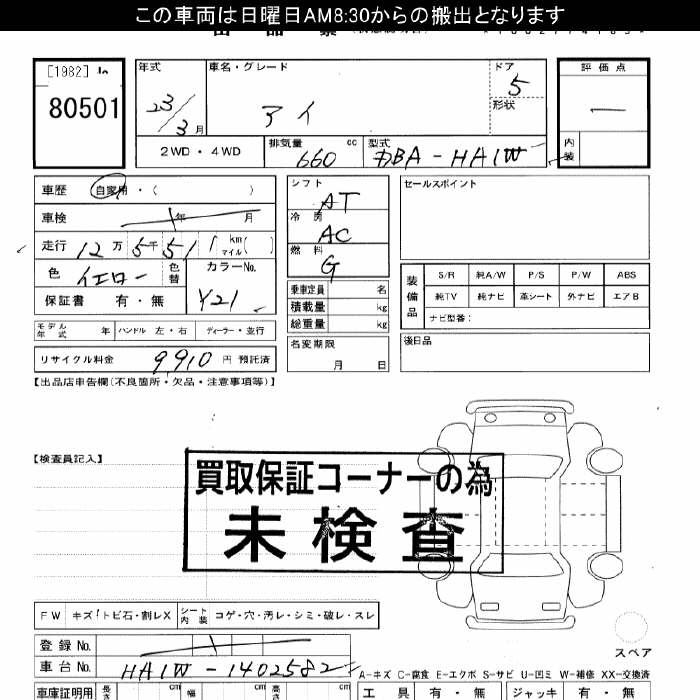 この車両は日曜日AM8:30からの搬出となります
[1982]
80501
年式
23/3月
車名・グレード
アイ
ドア
5
形状
評価点
内装
2WD・4WD
排気量 660 cc
型式 DBA-HA1W
車歴 自家用・( )
車検 年 月
走行 12万5千51 km マイル( )
色 イエロー 色替
カラーNo. Y21
保証書 有・無
シフト AT
冷房 AC
燃料 G
乗車定員 名
積載量 kg
総重量 kg
名変期限
月 日
セールスポイント
装備品
S/R 純A/W P/S P/W ABS
純TV 純ナビ 革シート 外ナビ エアB
ナビ型番:
後日品
モデル年式 年 ハンドル 左・右 ディーラー・並行
リサイクル料金 9,910 円 預託済
【出品店申告欄(不良箇所・欠品・注意事項等)】
【検査員記入】
買取保証コーナーの為
未検査
FW キズ・トビ石・割レX シート内装 コゲ・穴・汚レ・シミ・破レ・スレ
スペア
登録No.
車台No. HA1W-1402582
A-キズ C-腐食 E-エクボ S-サビ U-凹ミ W-補修 XX-交換済
車庫証明用 長さ cm 幅 cm 高さ cm
工具 有・無 ジャッキ 有・無